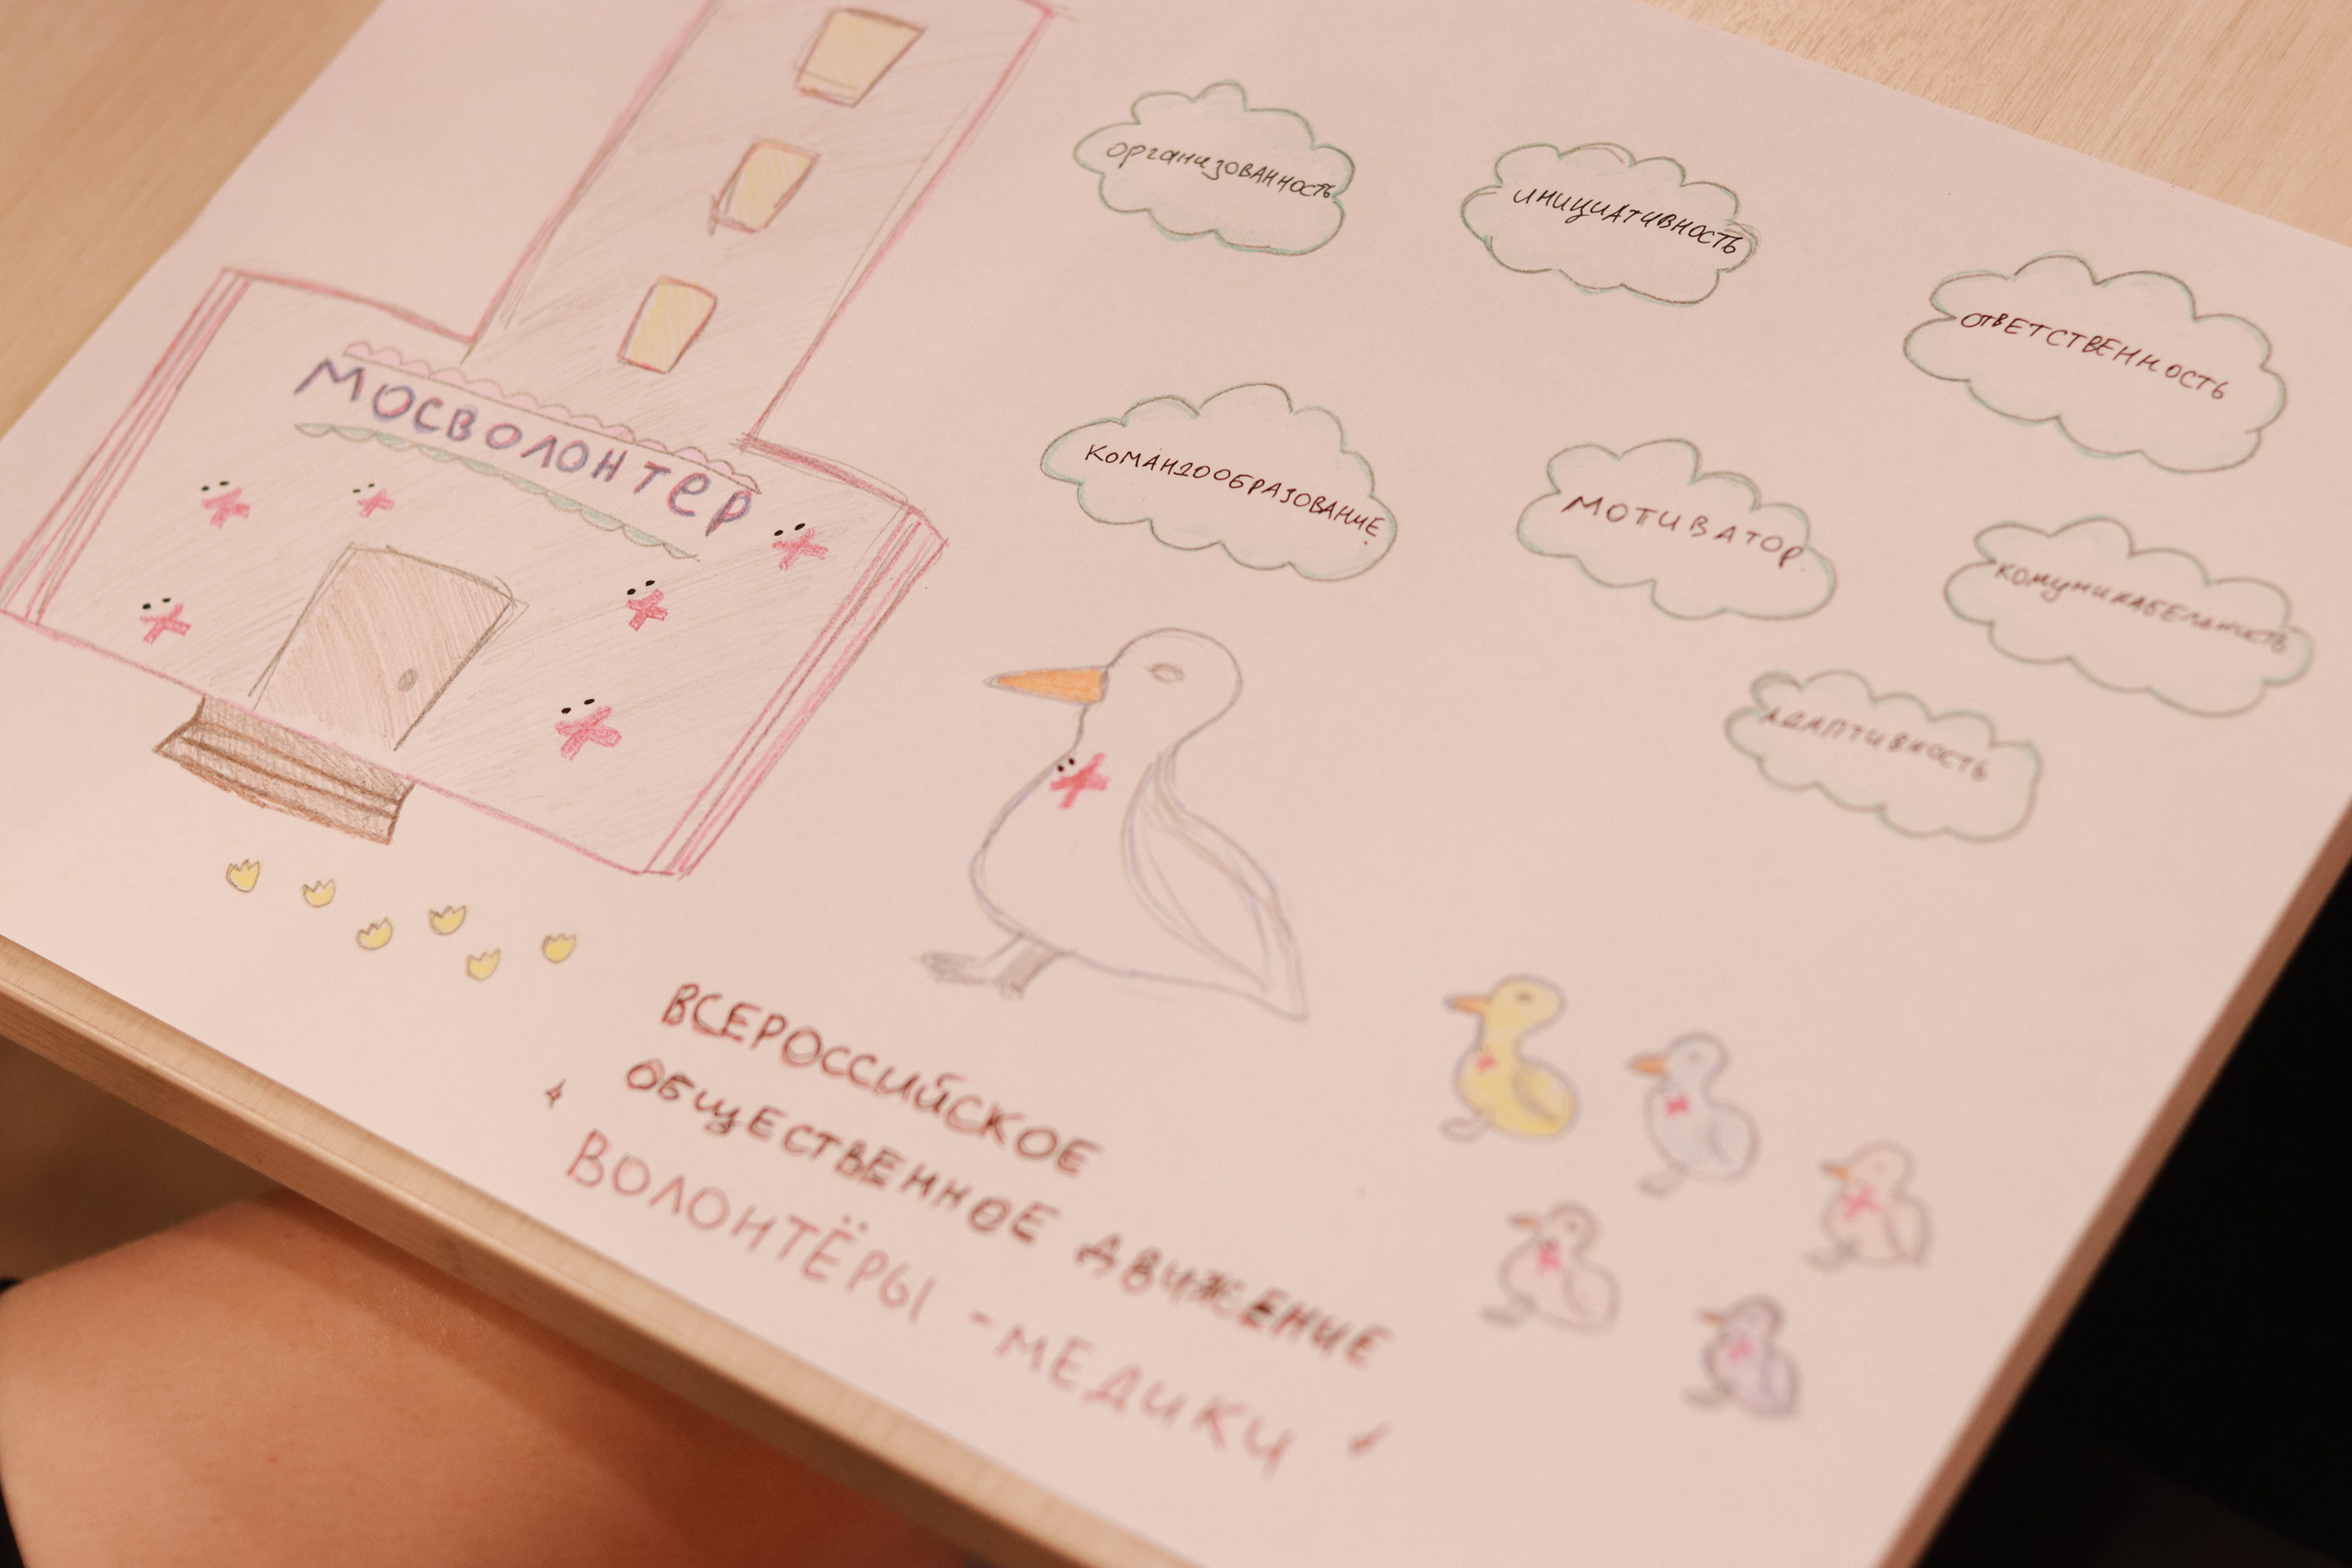 МОСВОЛОНТЕР
ОРГАНИЗОВАННОСТЬ
ИНИЦИАТИВНОСТЬ
ОТВЕТСТВЕННОСТЬ
КОМАНДООБРАЗОВАНИЕ
МОТИВАТОР
КОМУНИКАБЕЛЬНОСТЬ
АДАПТИВНОСТЬ
ВСЕРОССИЙСКОЕ
ОБЩЕСТВЕННОЕ ДВИЖЕНИЕ
"ВОЛОНТЁРЫ - МЕДИКИ"